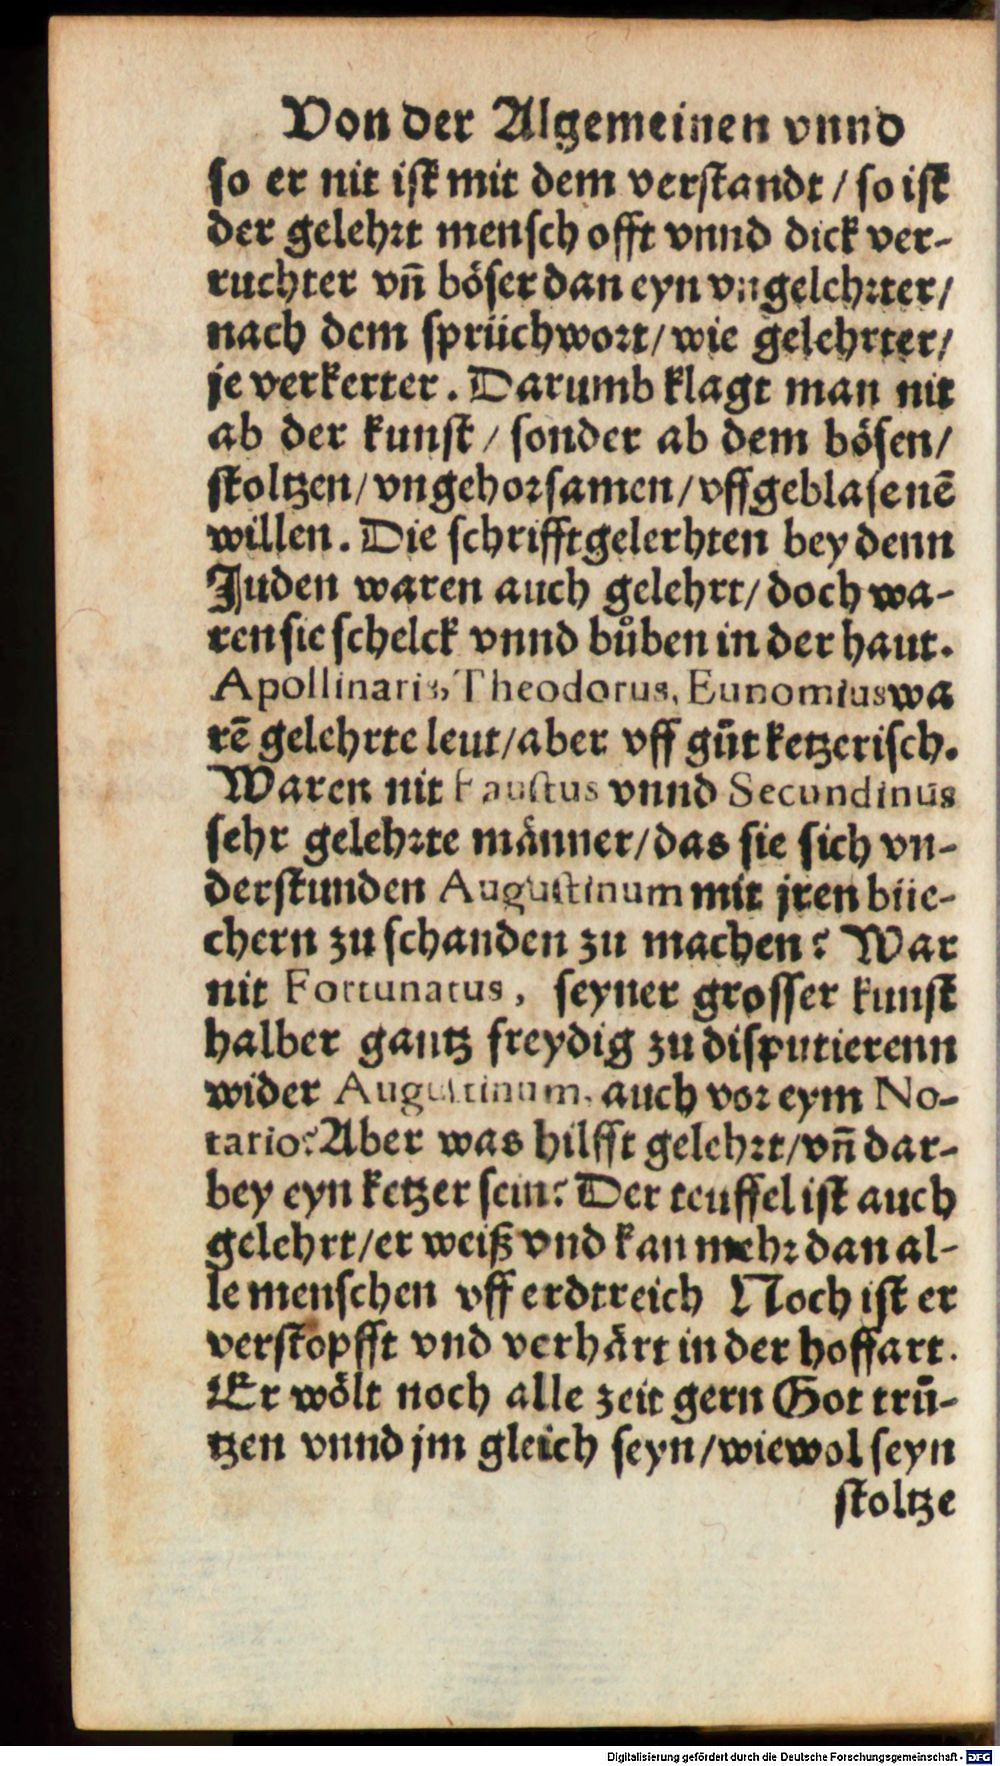 Von der Algemeinen vnnd
so er nit ist mit dem verstandt / so ist
der gelehrt mensch offt vnnd dick ver-
ruchter vn̄ böser dan eyn vngelehrter /
nach dem sprüchwort / wie gelehrter /
je verkerter . Darumb klagt man nit
ab der kunst / sonder ab dem bösen /
stoltzen / vngehorsamen / vffgeblasenē
willen . Die schrifftgelerhten bey denn
Juden waren auch gelehrt / doch wa-
ren sie schelck vnnd bůben in der haut.
Apollinaris, Theodorus, Eunomius wa
rē gelehrte leut / aber vff gůt ketzerisch.
Waren nit Faustus vnnd Secundinus
sehr gelehrte männer / das sie sich vn-
derstunden Augustinum mit jren büe-
chern zu schanden zu machen? War
nit Fortunatus, seyner grosser kunst
halber gantz freydig zu disputierenn
wider Augustinum, auch vor eym No-
tario? Aber was hilfft gelehrt / vn̄ dar-
bey eyn ketzer sein? Der teuffel ist auch
gelehrt / er weiß vnd kan mehr dan al-
le menschen vff erdtreich Noch ist er
verstopfft vnd verhärt in der hoffart.
Er wölt noch alle zeit gern Got trū-
tzen vnnd jm gleich seyn / wiewol seyn
stoltze
Digitalisierung gefördert durch die Deutsche Forschungsgemeinschaft - DFG